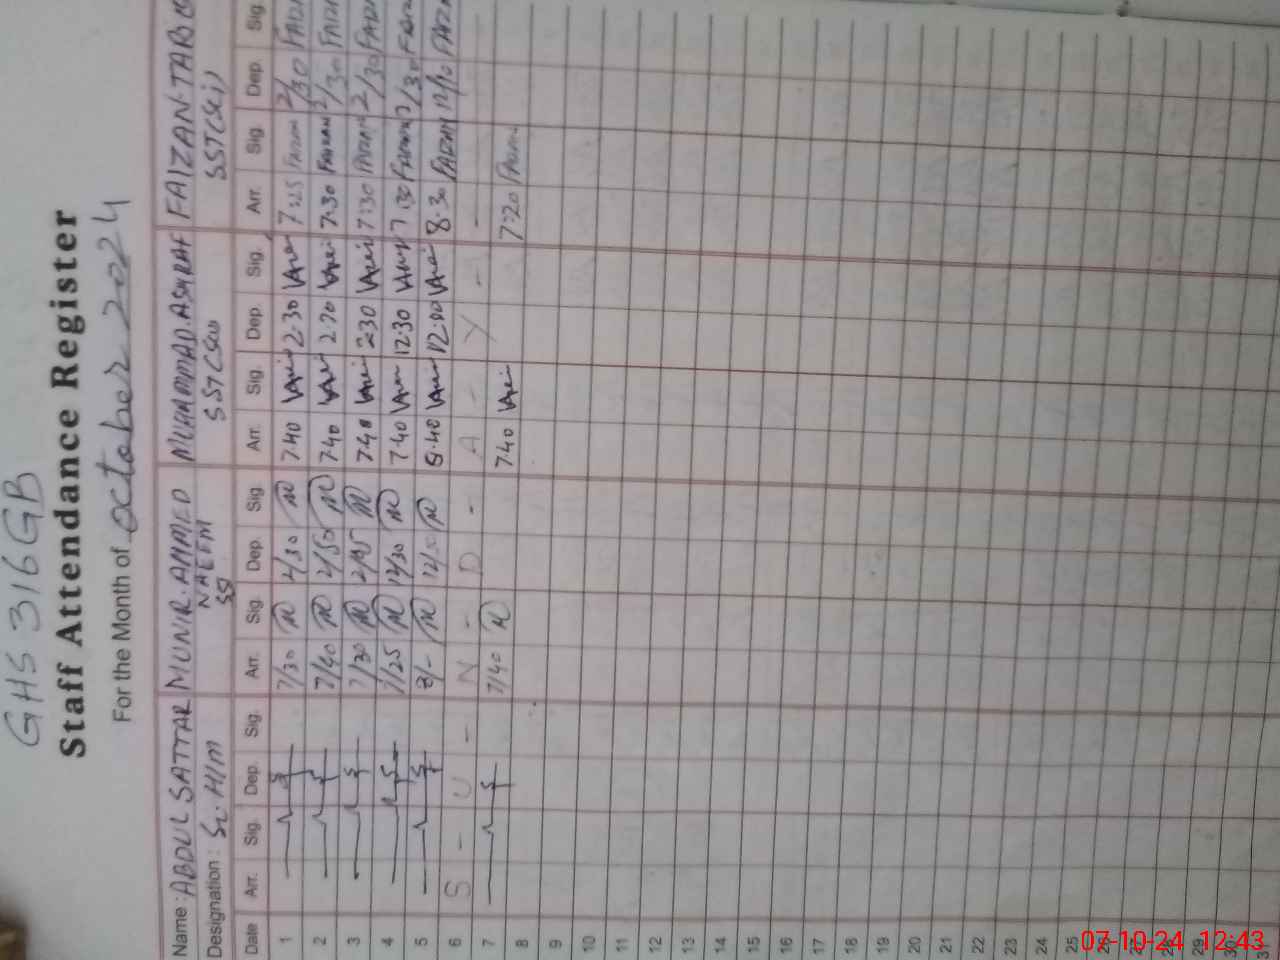 GHS 316 GB
Staff Attendance Register
For the Month of October 2024
Name : ABDUL SATTAR MUNIR. AHMED NAEEM MUHAMMAD. ASHRAF FAIZAN TARIQ
Designation : Sr. H/M SST SST(Sci)
Date Arr. Sig. Dep. Sig. Arr. Sig. Dep. Sig. Arr. Sig. Dep. Sig. Arr. Sig. Dep. Sig.
1 7/30 2/30 7.40 2.30 7:25 2/30
2 7/40 2/50 7.40 7.30 2/30
3 7/30 7.40 2.30 7:30 2/30
4 7/25 12/30 7.40 12.30 7:30
5 8/- 8.40 12.00 8.30
6 S - U - N - D - A - Y -
7 7/40 7.40 7:20
8
9
10
11
12
13
14
15
16
17
18
19
20
21
22
23
24
25
26
27
28
29
30
31
07-10-24 12:43